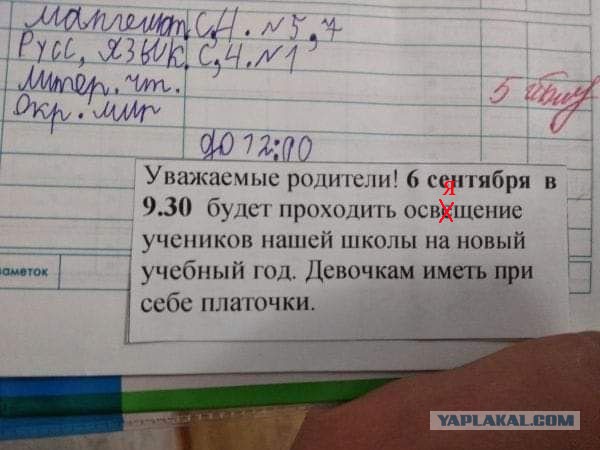 математ. с,4. №5,7
Русс, язык. с,4. №1
Литер. чт.
Окр. мир
5
до 12:00
Уважаемые родители! 6 сентября в
9.30 будет проходить освещение
я
учеников нашей школы на новый
учебный год. Девочкам иметь при
себе платочки.
заметок
YAPLAKAL.COM